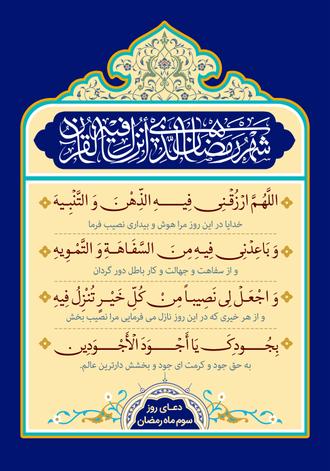 شهر رمضان الذی أنزل فیه القرآن
اللَّهُمَّ ارْزُقْنِي فِيـــهِ الذِّهْنَ وَ التَّنْبِيهَ
خدایا در این روز مرا هوش و بیداری نصیب فرما
وَ بَاعِدْنِي فِيهِ مِنَ السَّفَاهَةِ وَ التَّمْوِيهِ
و از سفاهت و جهالت و کار باطل دور گردان
وَ اجْعَلْ لِي نَصِيباً مِنْ كُلِّ خَيْــرٍ تُنْزِلُ فِيهِ
و از هر خیری که در این روز نازل می فرمایی مرا نصیب بخش
بِجُودِكَ يَا أَجْوَدَ الْأَجْوَدِينَ
به حق جود و کرمت ای جود و بخشش دارترین عالم.
دعـای روز
سوم ماه رمضان